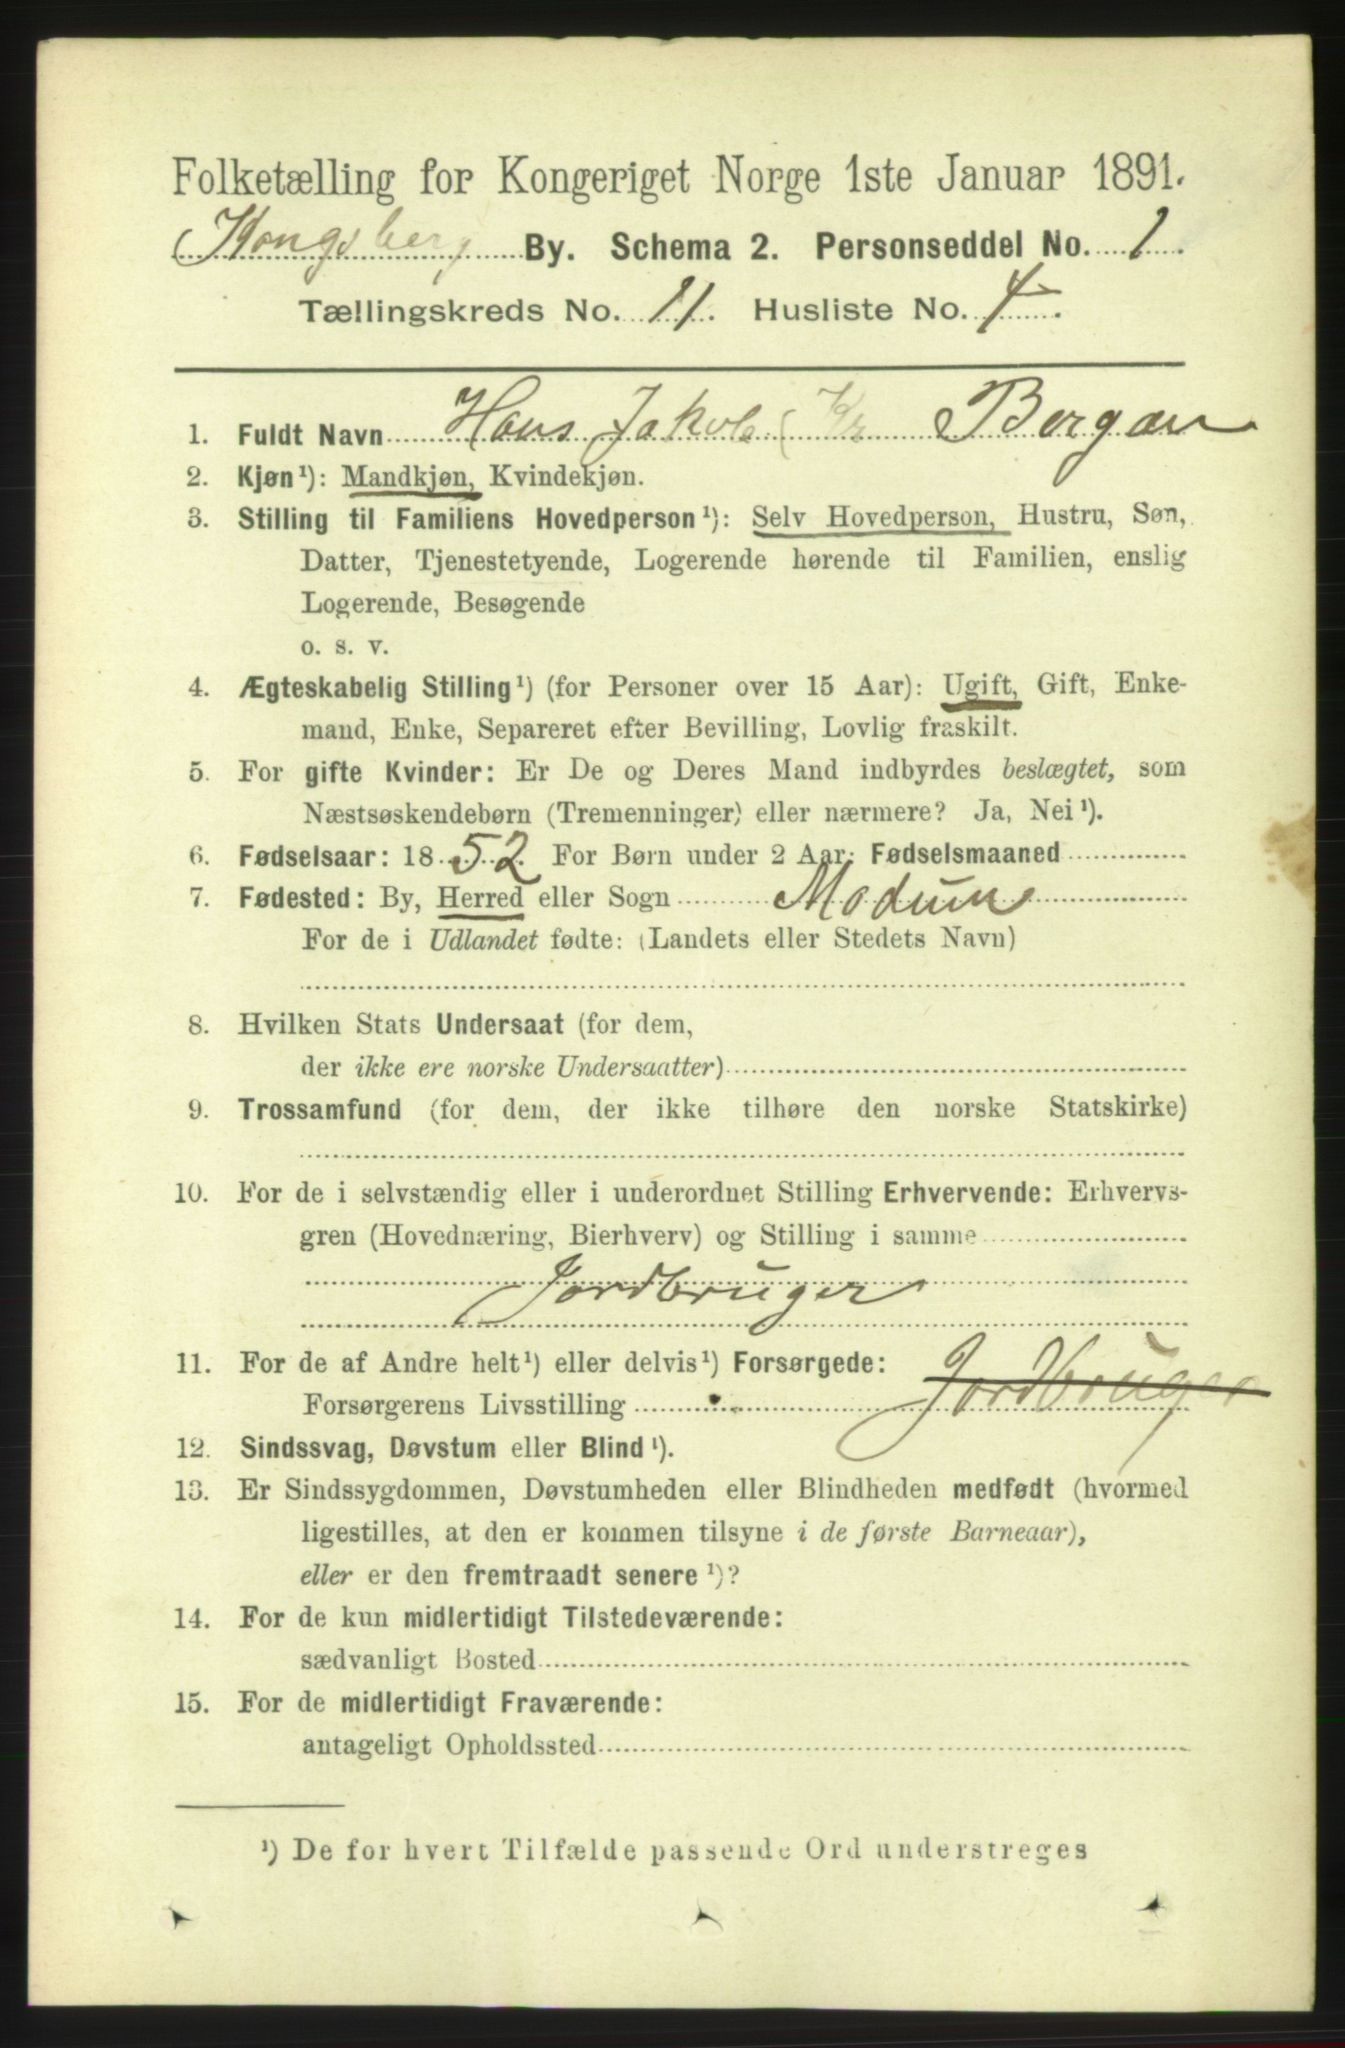 Folketælling for Kongeriget Norge 1ste Januar 1891.
Kongsberg By. Schema 2. Personseddel No. 1.
Tællingskreds No. 11. Husliste No. 4.
1. Fuldt Navn Hans Jakob (Kr Bergan
2. Kjøn¹): Mandkjøn, Kvindekjøn.
3. Stilling til Familiens Hovedperson¹): Selv Hovedperson, Hustru, Søn,
Datter, Tjenestetyende, Logerende hørende til Familien, enslig
Logerende, Besøgende
o. s. v.
4. Ægteskabelig Stilling¹) (for Personer over 15 Aar): Ugift, Gift, Enke-
mand, Enke, Separeret efter Bevilling, Lovlig fraskilt.
5. For gifte Kvinder: Er De og Deres Mand indbyrdes beslægtet, som
Næstsøskendebørn (Tremenninger) eller nærmere? Ja, Nei¹).
6. Fødselsaar: 1852. For Børn under 2 Aar: Fødselsmaaned
7. Fødested: By, Herred eller Sogn Modum
For de i Udlandet fødte: (Landets eller Stedets Navn)
8. Hvilken Stats Undersaat (for dem,
der ikke ere norske Undersaatter)
9. Trossamfund (for dem, der ikke tilhøre den norske Statskirke)
10. For de i selvstændig eller i underordnet Stilling Erhvervende: Erhvervs-
gren (Hovednæring, Bierhverv) og Stilling i samme
Jordbruger
11. For de af Andre helt¹) eller delvis¹) Forsørgede: Jordbruger
Forsørgerens Livsstilling
12. Sindssvag, Døvstum eller Blind¹).
13. Er Sindssygdommen, Døvstumheden eller Blindheden medfødt (hvormed
ligestilles, at den er kommen tilsyne i de første Barneaar),
eller er den fremtraadt senere¹)?
14. For de kun midlertidigt Tilstedeværende:
sædvanligt Bosted
15. For de midlertidigt Fraværende:
antageligt Opholdssted
¹) De for hvert Tilfælde passende Ord understreges